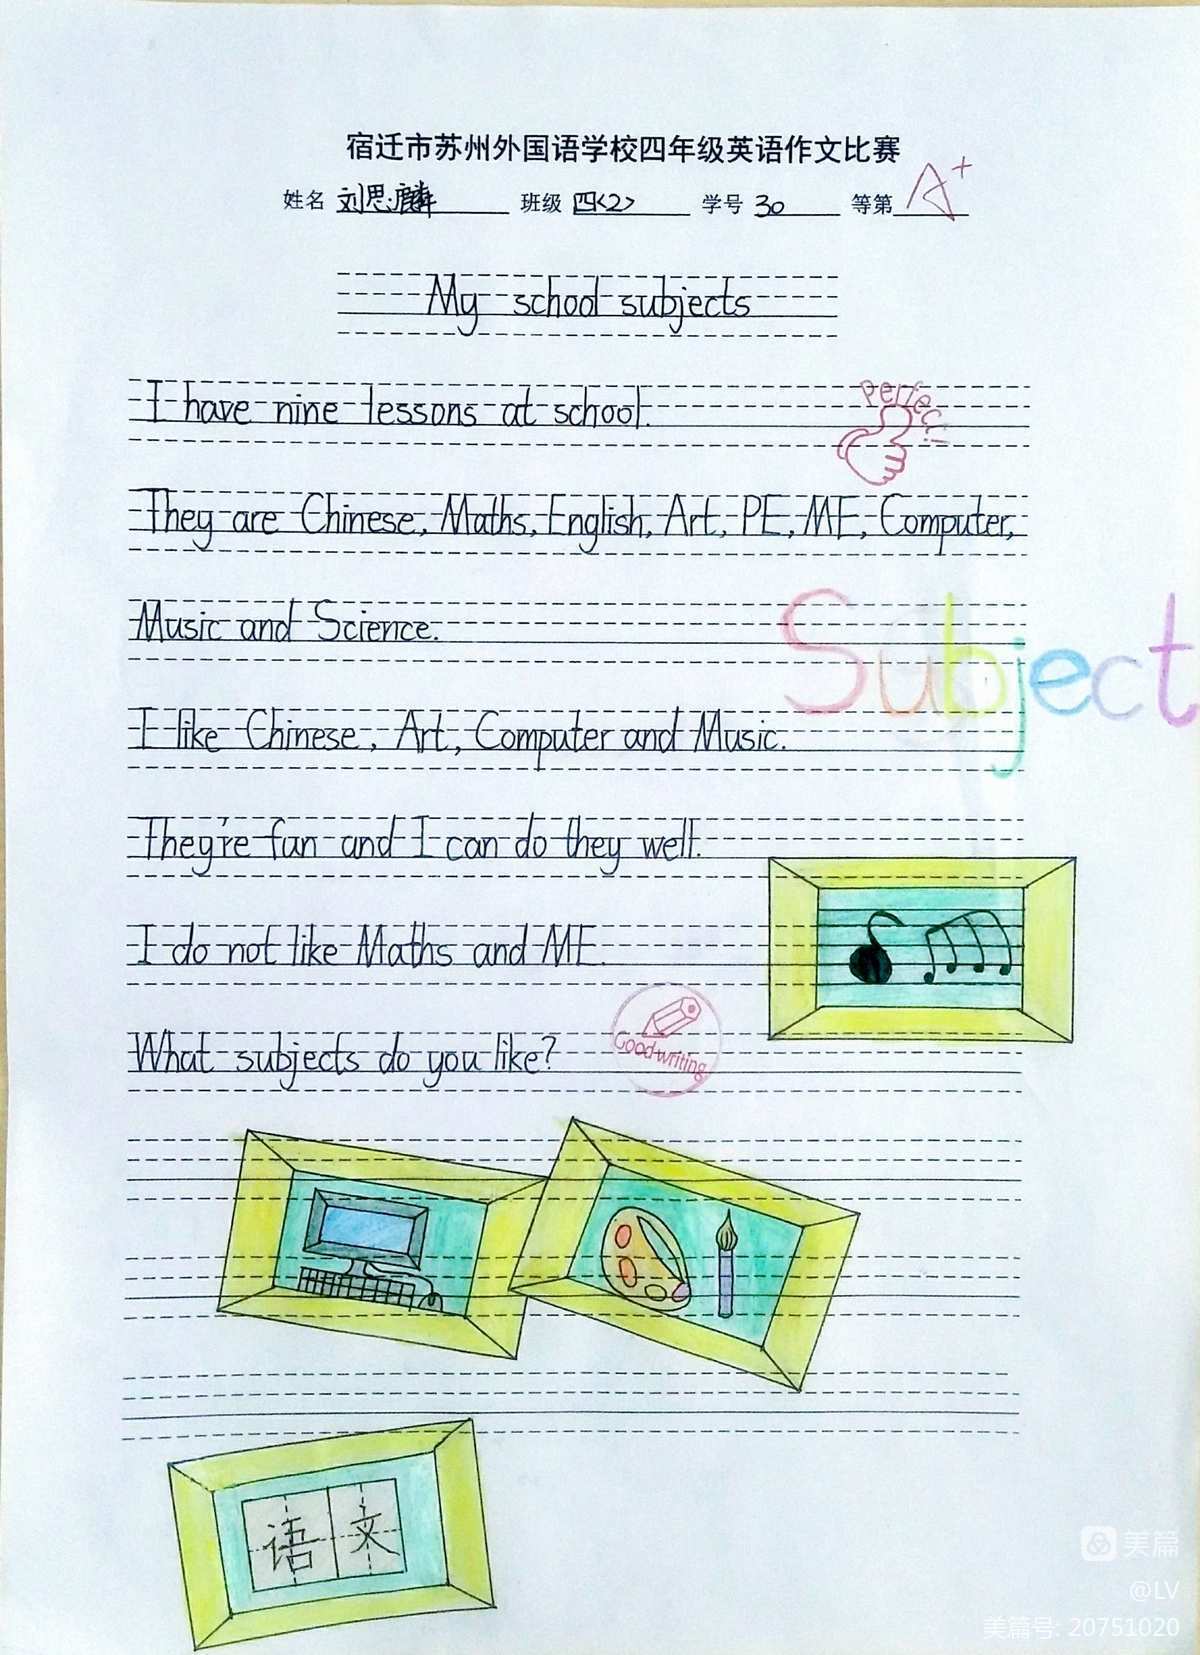 宿迁市苏州外国语学校四年级英语作文比赛
姓名 刘思麟 班级 四<2> 学号 30 等第 A+
My school subjects
I have nine lessons at school.
Perfect!
They are Chinese, Maths, English, Art, PE, ME, Computer,
Music and Science.
Subject
I like Chinese, Art, Computer and Music.
They're fun and I can do they well.
I do not like Maths and ME.
What subjects do you like?
Good writing
语文
美篇
@LV
美篇号: 20751020